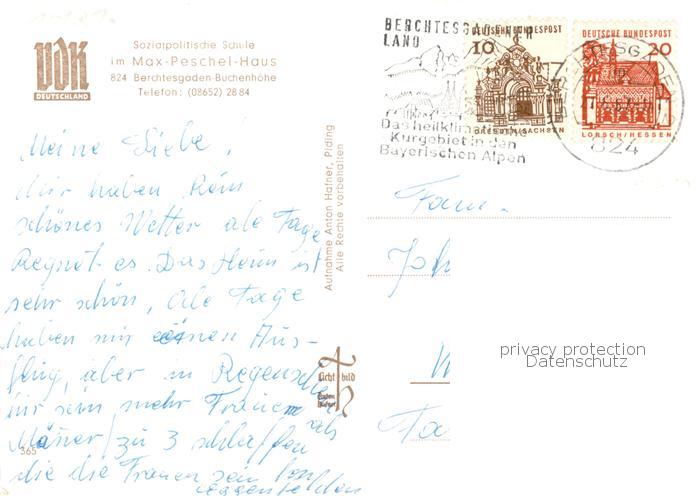 VDK
DEUTSCHLAND
Sozialpolitische Schule
im Max-Peschel-Haus
824 Berchtesgaden-Buchenhöhe
Telefon: (08652) 28 84
BERCHTESGADENER
LAND
Das heilklim
Kurgebiet in den
Bayerischen Alpen
DEUTSCHE BUNDESPOST
10
DRESDEN/SACHSEN
DEUTSCHE BUNDESPOST
20
LORSCH/HESSEN
824
Meine Liebe!
Wir haben kein
schönes Wetter ale Tage
Regnet es. Das Heim ist
sehr schön, Ale Tage
haben wir einen Aus-
flug, aber im Regenschein
Wir sein mehr Frauen als
Mäner / zu 3 schlaffen
die die Frauen sein
Eggenfelden
Aufnahme Anton Hafner, Piding
Alle Rechte vorbehalten
Licht bild
Anton
Hafner
365
Fam.
Joh
W
Fa
privacy protection
Datenschutz